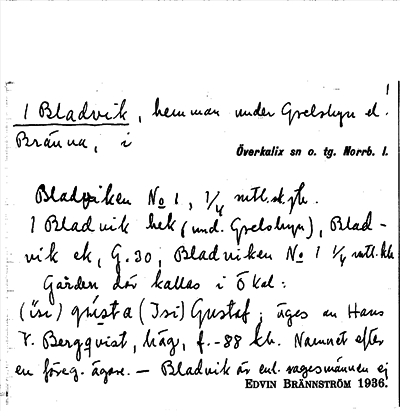 1
1 Bladvik, hemman under Grelsbyn el.
Bränna, i
Överkalix sn o. tg. Norrb. l.
Bladviken No 1, 1/4 mtl. sk
1 Bladvik hek (und. Grelsbyn), Blad-
vik ek, G. 30, Bladviken No 1 1/4 mtl.
Gården där kallas i Ökal:
(ìsi) gústa (Isi) Gustaf; äges av Hans
V. Bergqvist, häg, f. -88 kb. Namnet efter
en föreg. ägare. — Bladvik är enl. sagesmännen ej
EDVIN BRÄNNSTRÖM 1936.